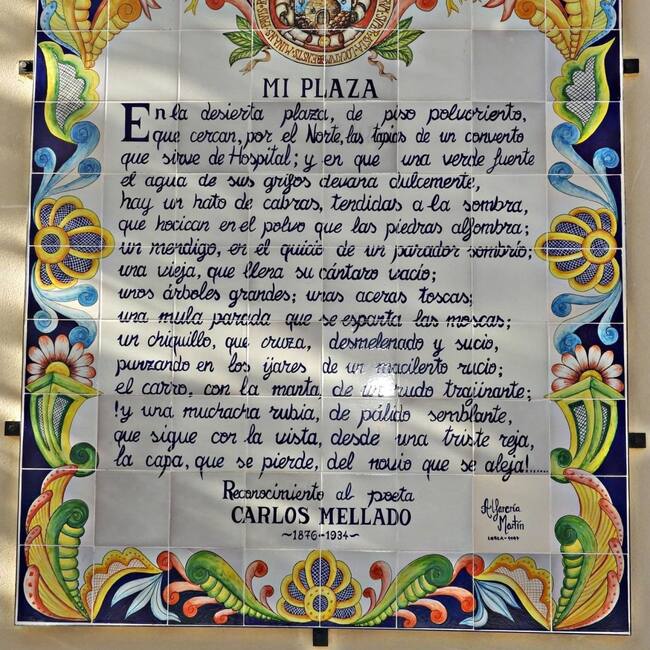 MI PLAZA
En la desierta plaza, de piso polvoriento,
que cercan, por el Norte, las tapias de un convento
que sirve de Hospital; y en que una verde fuente
el agua de sus grifos devana dulcemente,
hay un hato de cabras, tendidas a la sombra,
que hocican en el polvo que las piedras alfombra;
un mendigo, en el quicio de un parador sombrío;
una vieja, que llena su cántaro vacío;
unos árboles grandes; unas aceras toscas;
una mula parada que se espanta las moscas;
un chiquillo, que cruza, desmelenado y sucio,
punzando en los ijares de un macilento rucio;
el carro, con la manta, de un rudo trajinante;
!y una muchacha rubia, de pálido semblante,
que sigue con la vista, desde una triste reja,
la capa, que se pierde, del novio que se aleja!......
Reconocimiento al poeta
CARLOS MELLADO
~1876-1934~
Alfarería
Martín